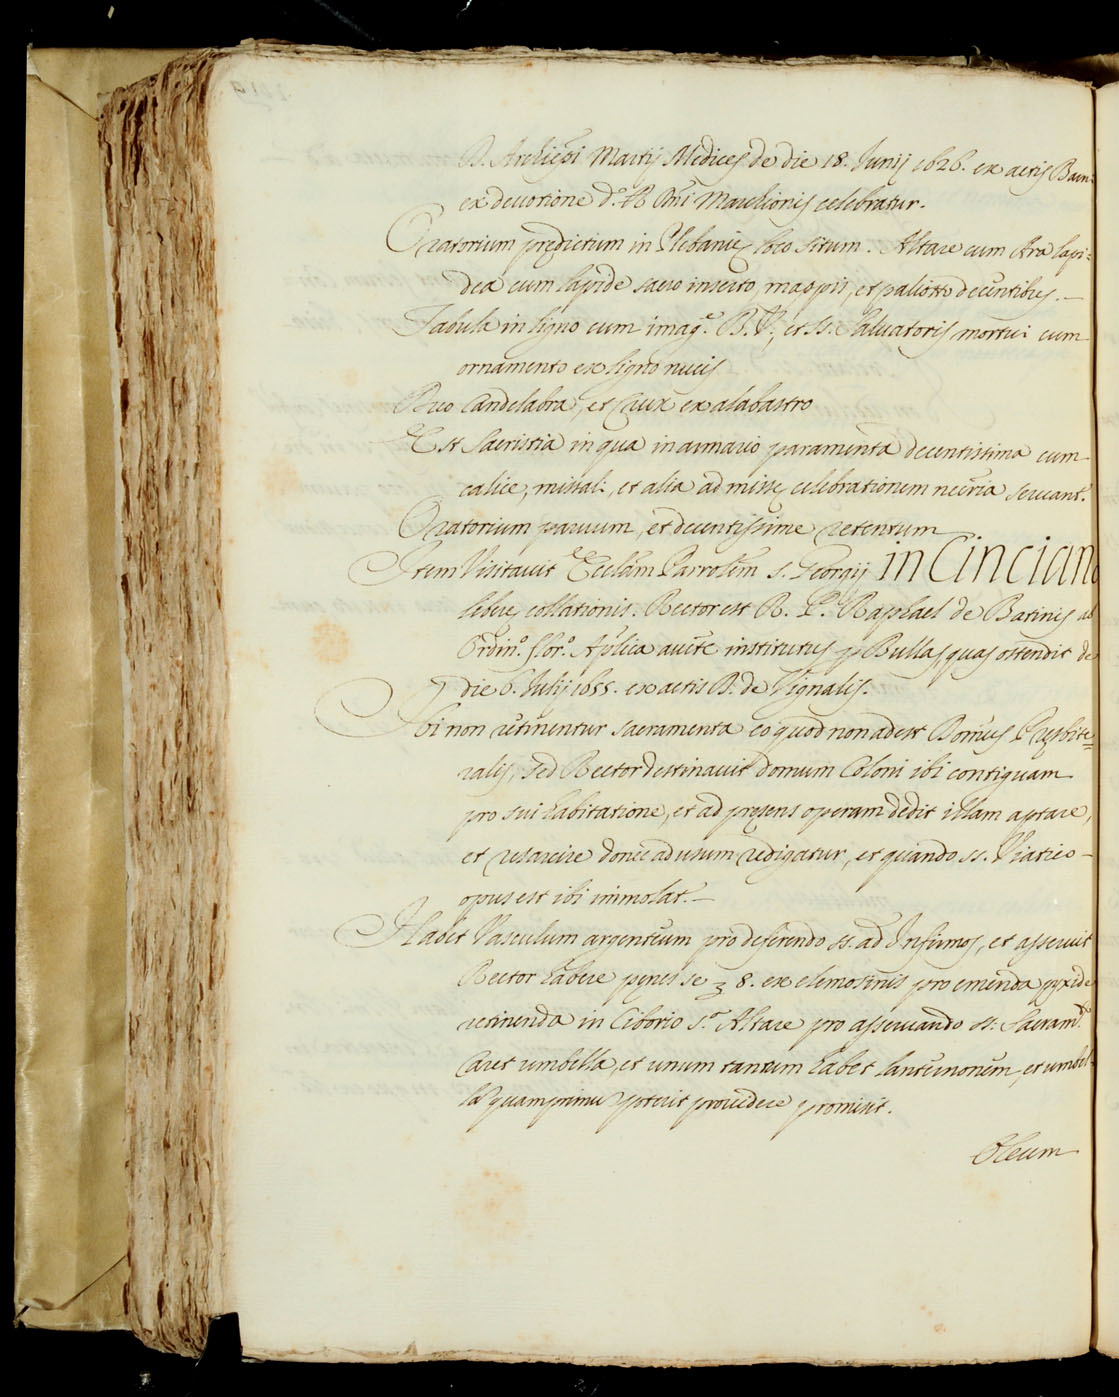 D. Archiepi Martij Medices de die 18. Junij 1626. ex actis
ex devotione d. celebratur.
Oratorium predictum in Plebanie loco situm. Altare cum Ara lapi=
dea cum lapide sacro inserto, mappis, et paliotto decentibus.—
Tabula in ligno cum imag.e B. V., et SS. Salvatoris mortui cum
ornamento ex ligno nucis
Duo Candelabra, et Crux ex alabastro
Est Sacristia in qua in armario paramenta decentissima cum
calice, missal:, et alia ad misse celebrationem necria servant.r
Oratorium parvum, et decentissime retentum
Item Visitavit Ecclam Parrolem S. Georgij in Cinciano
libere collationis. Rector est R. P. Raphael de Batinis ab
Ordin.o flor.o Aplica aucte institutus p Bullas, quas ostendit de
die 6. Julij 1655. ex actis B. de Vignalis.
Ibi non retinentur sacramenta eo quod non adest Domus Presbite=
ralis, sed Rector destinavit domum Coloni ibi contiguam
pro sui habitatione, et ad presens operam dedit illam aptare,
et resarcire donec ad usum redigatur, et quando ss. Viatico—
opus est ibi immolat.—
Habet Vasculum argenteum pro deferendo ss. ad Infirmos, et asseruit
Rector habere penes se 8. ex elemosinis pro emenda pyxide
retinenda in Ciborio s.r Altare pro asservando ss: Sacram.to
Caret umbella, et unum tantum habet lanternonem, et umbel=
la quamprimu poterit providere promisit.
Oleum